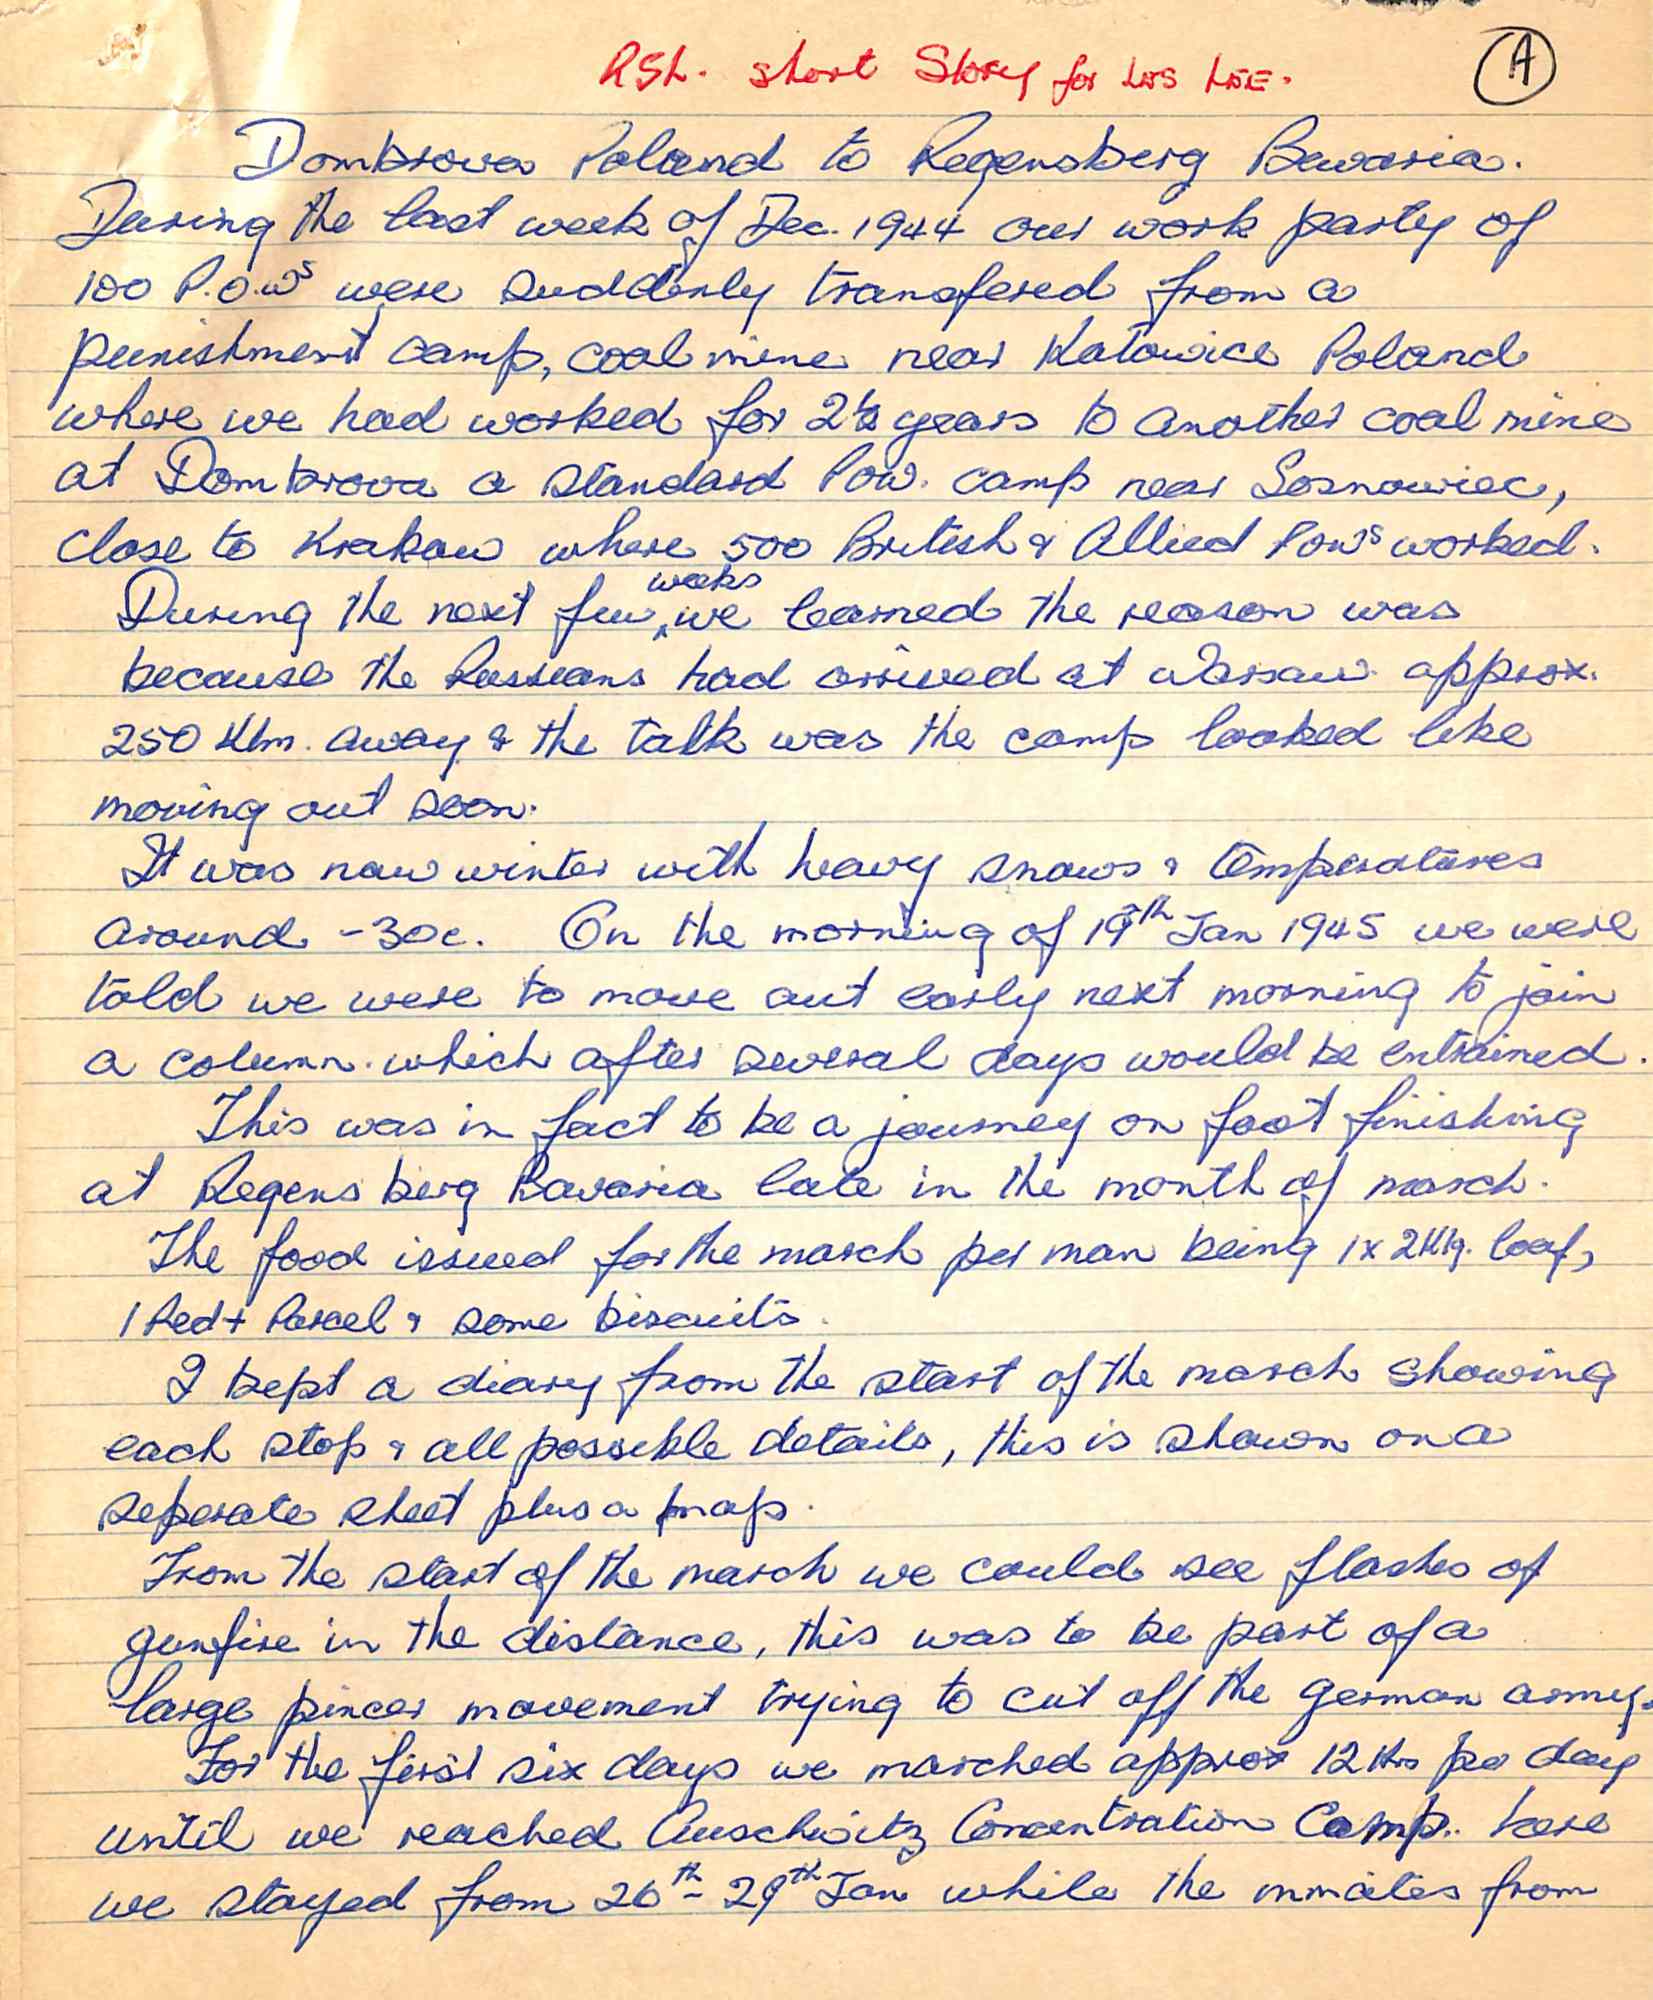 RSL. short Story for LES LEE.
A
Dombrova Poland to Regensberg Bavaria.
During the last week of Dec. 1944 our work party of
100 P.O.Ws were suddenly transfered from a
punishment camp, coal mine near Katowice Poland
where we had worked for 2½ years to another coal mine
at Dombrova a standard Pow. camp near Sosnowiec,
close to Krakow where 500 British & Allied Pows worked.
During the next few weeks we learned the reason was
because the Russians had arrived at Warsaw approx.
250 Klm. away & the talk was the camp looked like
moving out soon.
It was now winter with heavy snows & temperatures
around -30c. On the morning of 19th Jan 1945 we were
told we were to move out early next morning to join
a column which after several days would be entrained.
This was in fact to be a journey on foot finishing
at Regensberg Bavaria late in the month of march.
The food issued for the march per man being 1x 2Klg. loaf,
1 Red + Parcel & some biscuits.
I kept a diary from the start of the march showing
each stop & all possible details, this is shown on a
seperate sheet plus a map.
From the start of the march we could see flashes of
gunfire in the distance, this was to be part of a
large pincer movement trying to cut off the german army.
For the first six days we marched approx 12 Hrs per day
until we reached Auschwitz Concentration Camp. here
we stayed from 26th - 29th Jan while the inmates from